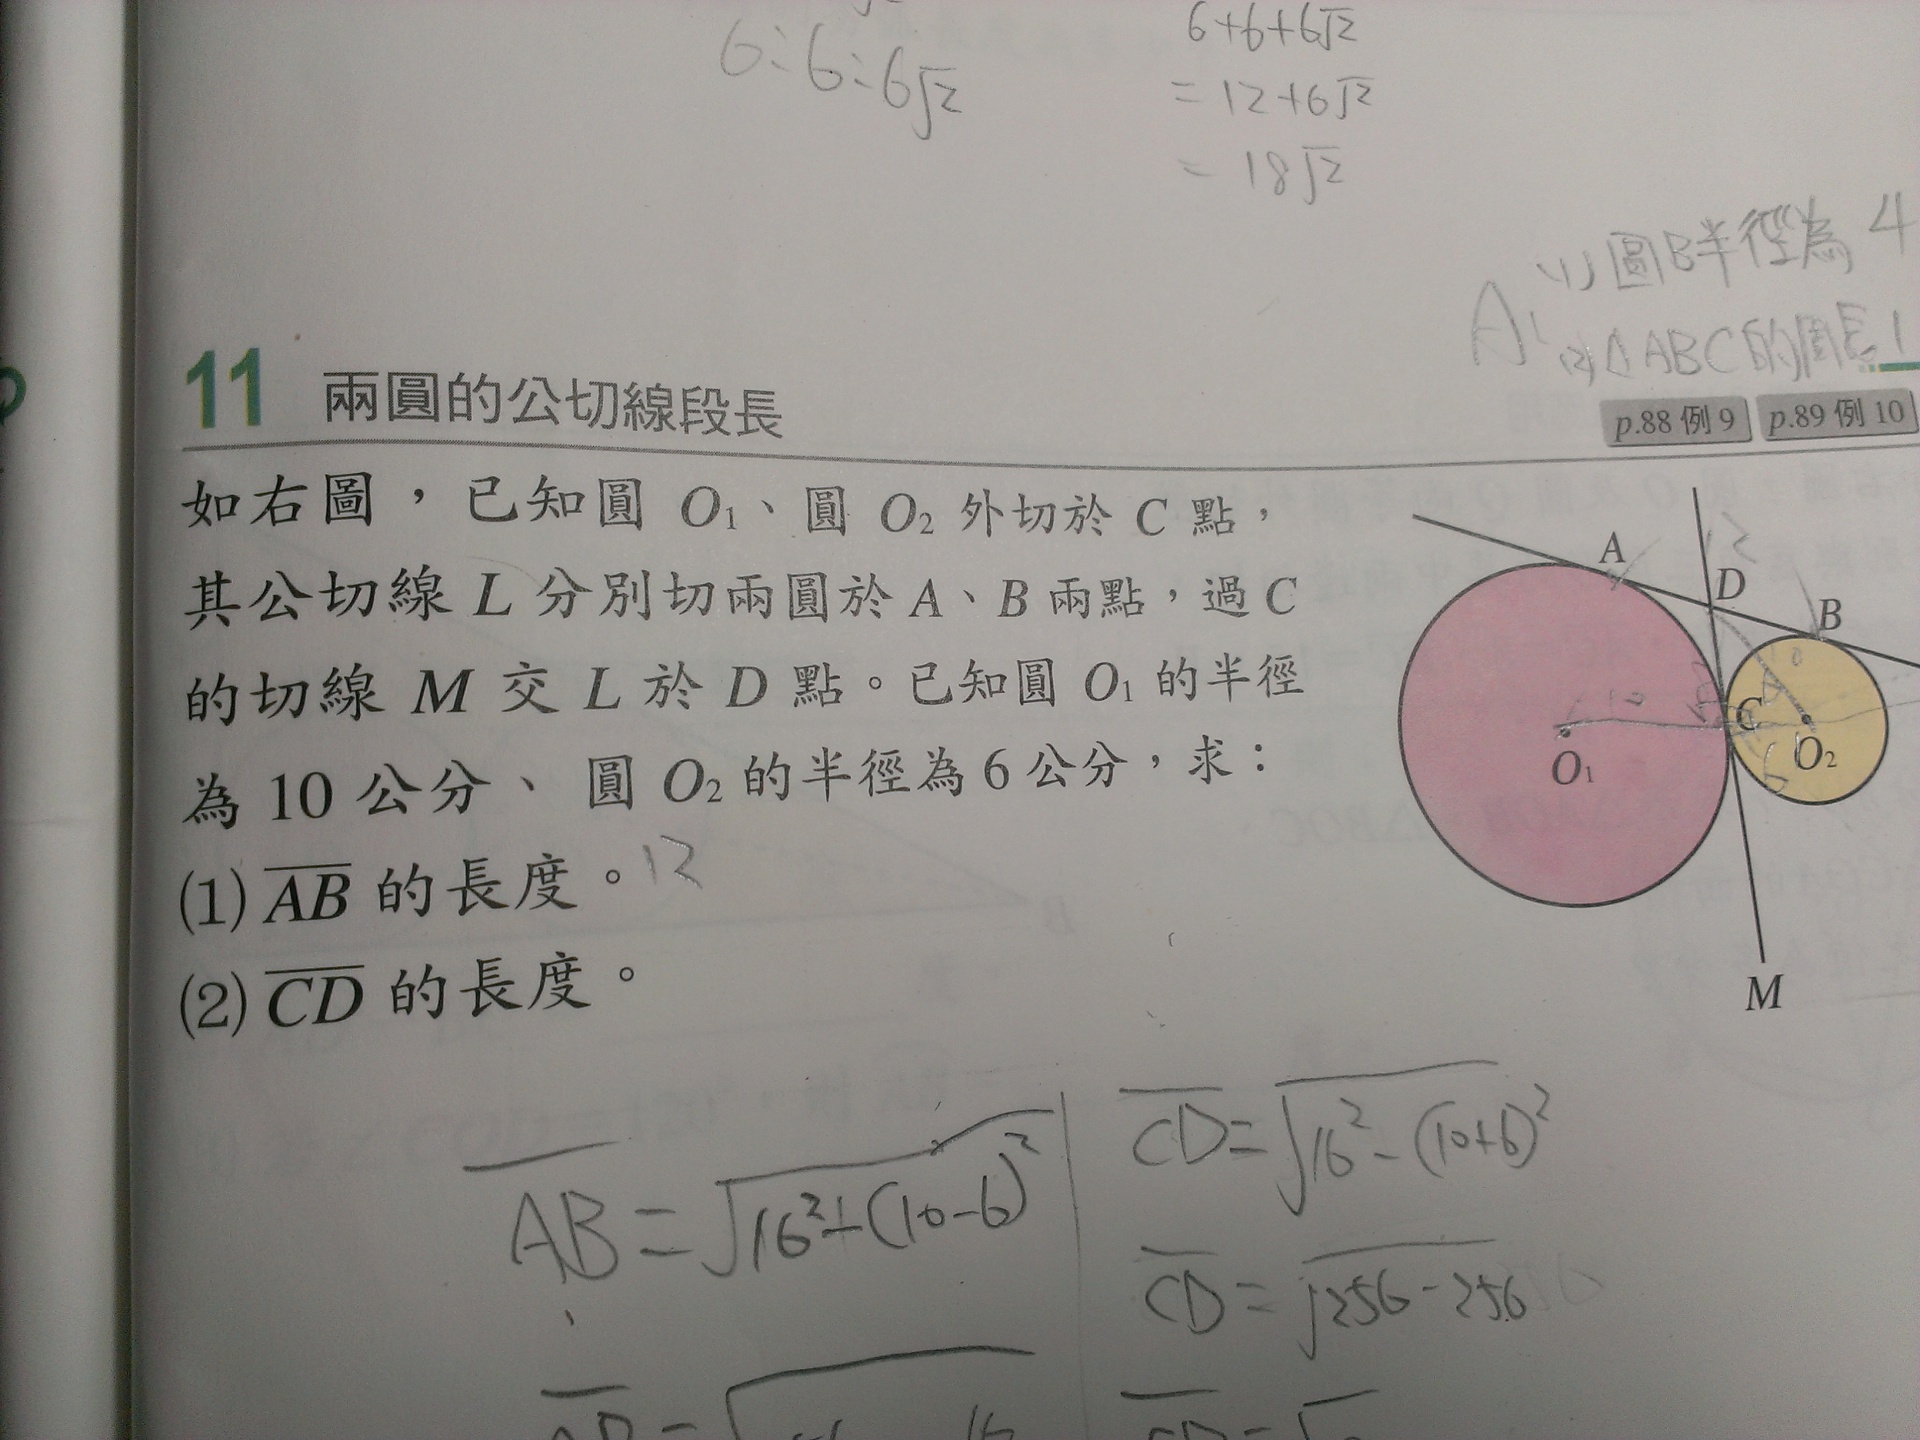 6:6:6√2
6+6+6√2
= 12+6√2
= 18√2
A: (1) 圓B半徑為 4
(2) △ABC的周長 1
11 兩圓的公切線段長
p.88 例 9 p.89 例 10
如右圖，已知圓 O₁、圓 O₂ 外切於 C 點，
其公切線 L 分別切兩圓於 A、B 兩點，過 C
的切線 M 交 L 於 D 點。已知圓 O₁ 的半徑
為 10 公分、圓 O₂ 的半徑為 6 公分，求：
(1) A̅B̅ 的長度。12
(2) C̅D̅ 的長度。
A
12
D
B
10
C
6
O₁
O₂
M
A̅B̅ = √16²+(10-6)²
C̅D̅ = √16²-(10+6)²
C̅D̅ = √256-256